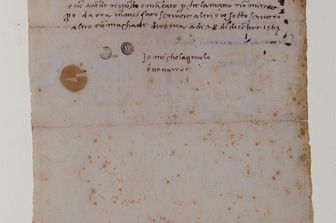 risposto pche la mano no mi serve
po da ora inanzi faro scrivere altri e io socto scrivero
altro no machade di roma a di 28 di dicembre 1563
Io michelagniolo
buonarroti